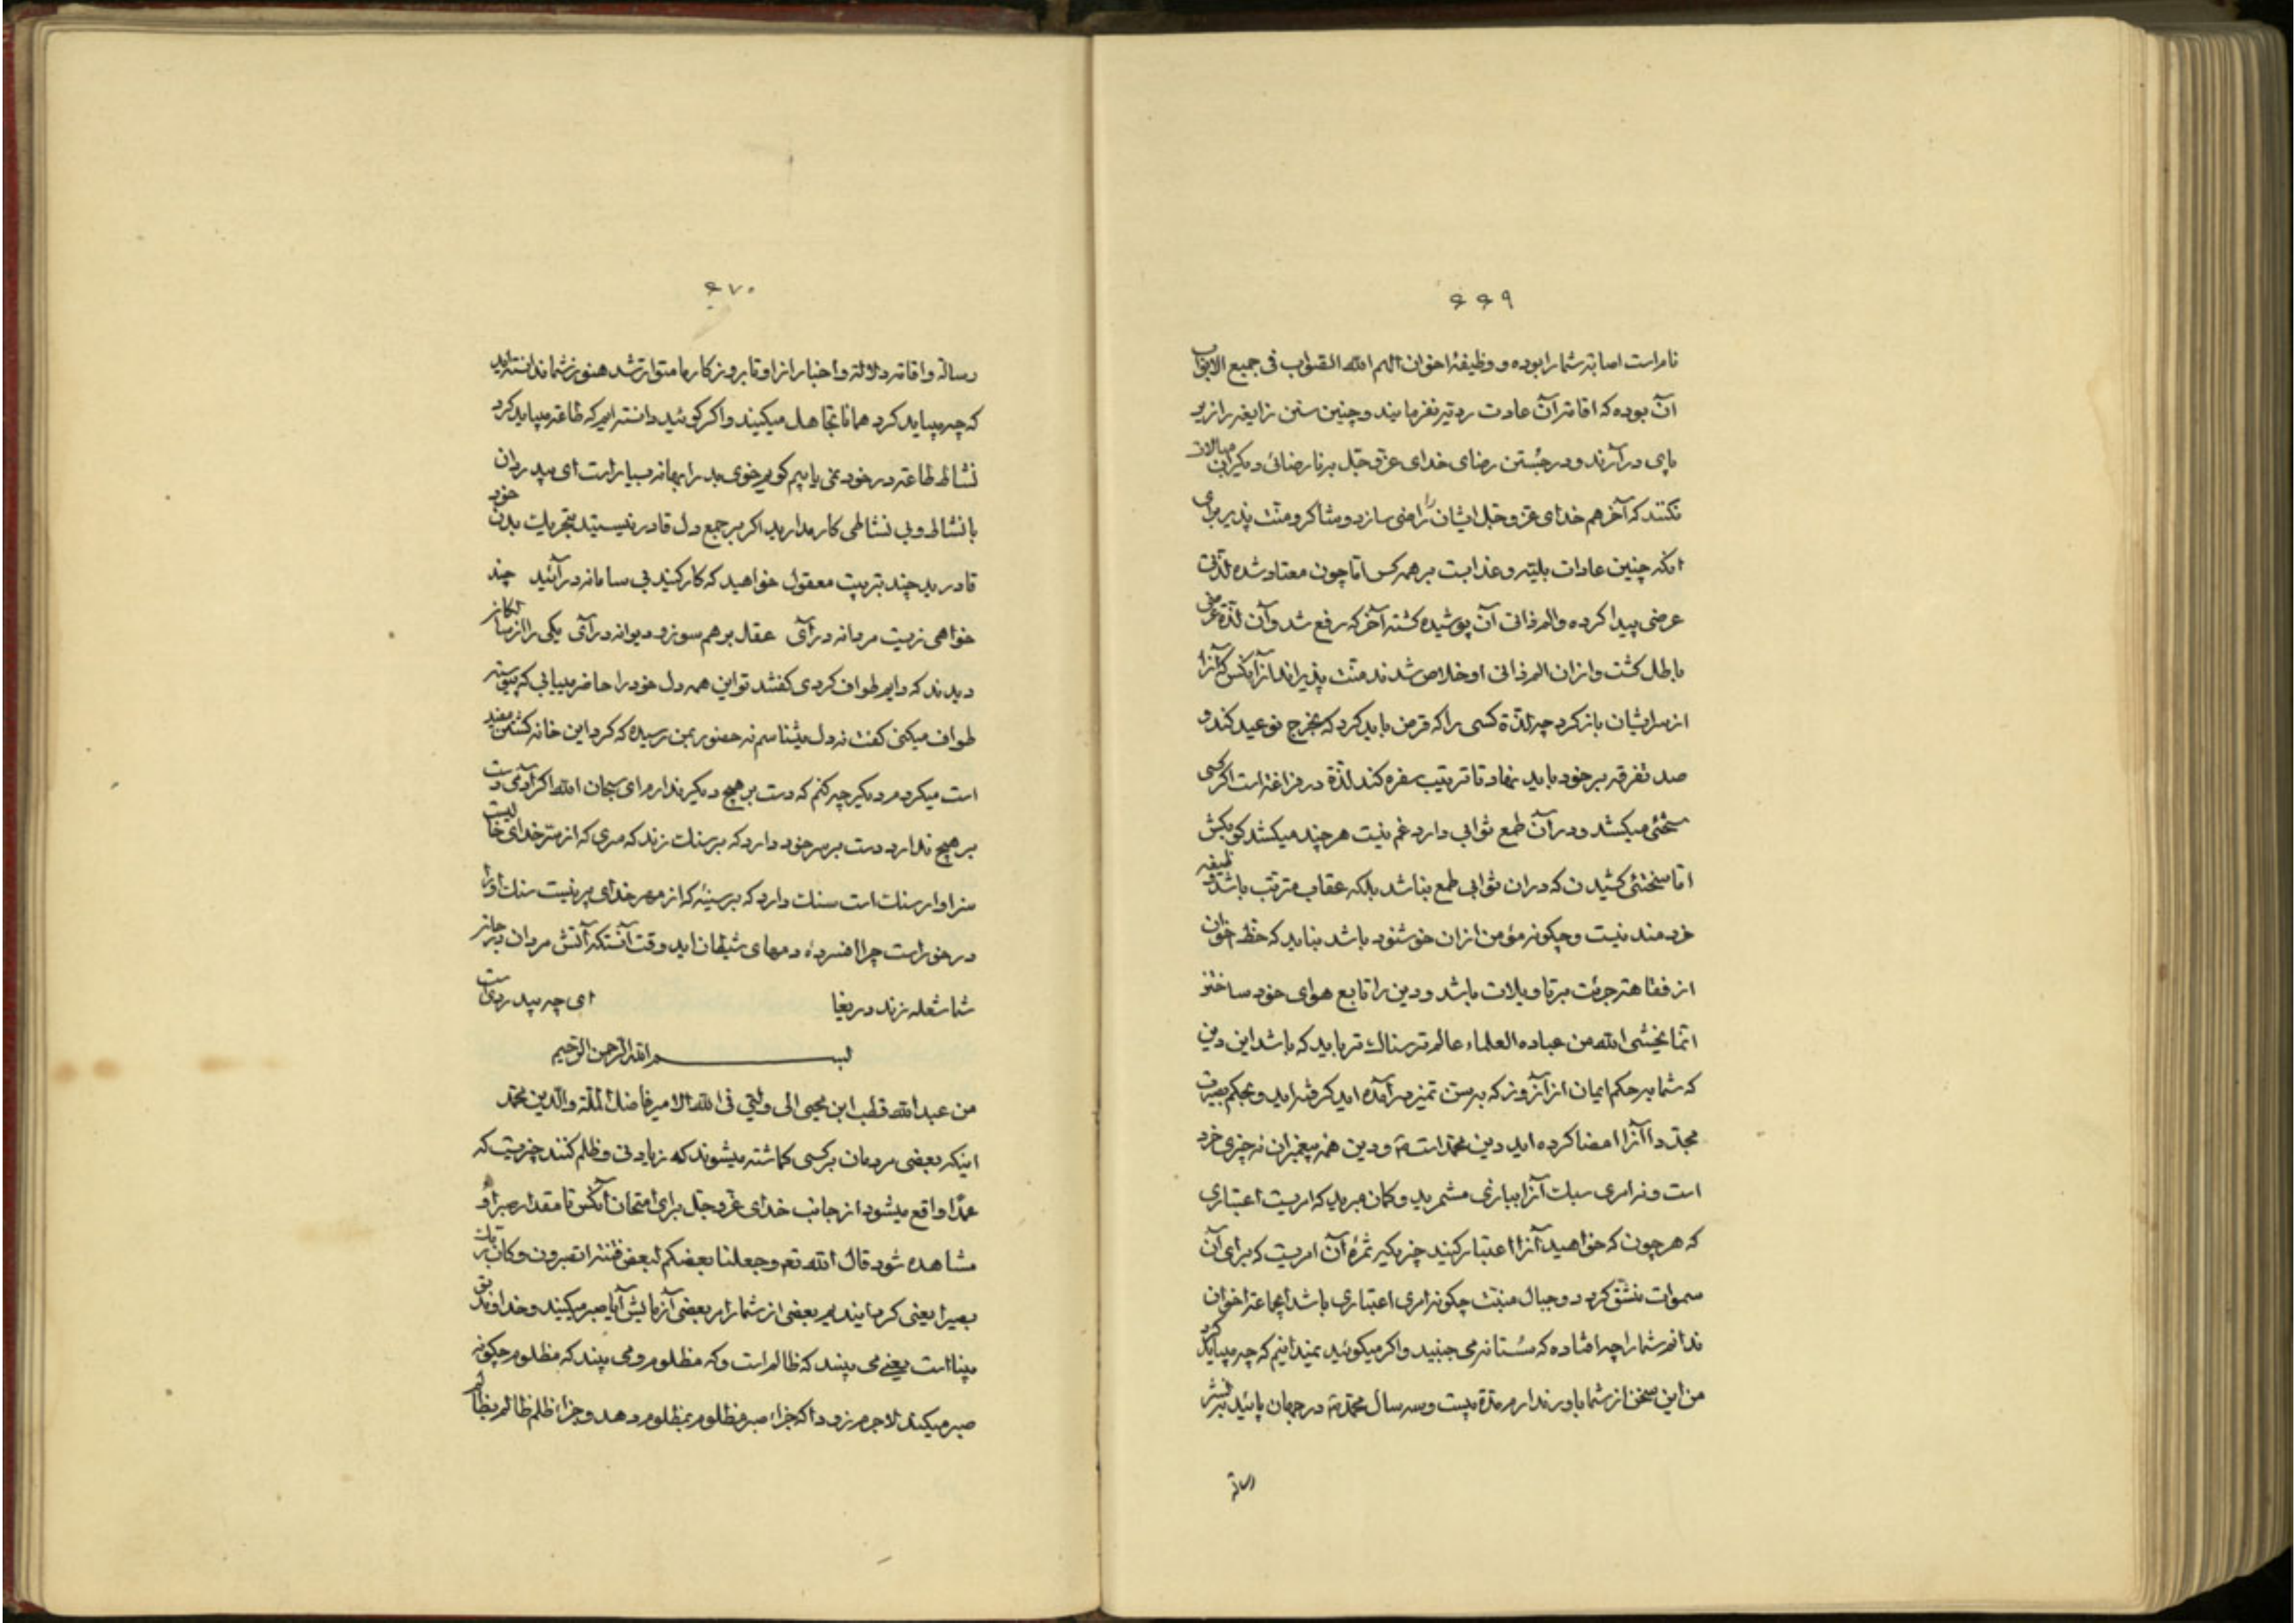 ۶۶۹
نامراست اصابته شما را بوده و وظیفهٔ اخوان الهم الله الصواب فی جمیع الابواب
آن بوده که اقامتر آن عادت ردیه نفرمایند و چنین سنن زایغه را زیر
پای درآرند و در جستن رضای خدای عزوجل برنا رضائی دیگران مبالات
نکنند که آخر هم خدای عزوجل ایشان را راضی سازد و شاکر و منت پذیر برای
انکه چنین عادات بلیته و عذابست بر همه کس اما چون معتاد شده لذتی
عرضی پیدا کرده و الم ذاتی آن پوشیده کشته آخر که رفع شد و آن لذة عرضی
باطل کشت و ازان الم ذاتی او خلاص شدند منت پذیراند ازآنکس که آنرا
از سرایشان باز کرد چه لذة کسی را که قرض باید کرد که بخرج نو عید کند و
صد تفرقه بر خود باید نهاد تا ترتیب سفره کند لذة در فراغتست اکر کسی
سختئی میکشد و در آن طمع ثوابی دارد غم نیست هر چند میکشد کو بکش
اما سختئی کشیدن که دران ثوابی طمع نباشد بلکه عقاب مترتب باشد وظیفه
خردمند نیست و چکونه مؤمن ازان خوشنود باشد نباید که حظ اخوان
از فقاهتر جرئت بر تاویلات باشد و دین را تابع هوای خود ساختن
انما یخشی الله من عباده العلماء عالم ترسناك تر باید که باشد این دین
که شما بر حکم ایمان از آنروز که بر سن تمیز درآمده اید کرفته اید و بحکم بصیرت
مجددا آنرا امضا کرده اید دین محمد است ص و دین همه پیغمبران نه چیزی خرد
است و نه امری سبك آنرا ببازی مشمرید و کمان مبرید که امریست اعتباری
که هر چون که خواهید آنرا اعتبار کنید چیزیکه ثمرهٔ آن امریست که برای آن
سموات منشق کردد و جبال منبث چکونه امری اعتباری باشد ایجماعة اخوان
ندانم شما را چه افتاده که سستانه می جنبید و اکر میکوئید نمیدانیم که چه میباید کرد
من این سخن از شما باور ندارم مدة بیست و سه سال محمد ص در جهان پائید نشر
رسالة
۶۷۰
رسالة و اقامة دلالة و اخبار از او تا بروزکار ما متواتر شد هنوز شما ندانسته اید
که چه میباید کرد همانا تجاهل میکنید و اکر کوئید دانسته ایم که طاعة میباید کرد
نشاط طاعة در خود نمی یابیم کویم خوی بد را بهانه بسیار است ای بیدردان
با نشاط و بی نشاطی کار مدارید اکر بر جمع دل قادر نیستید بتحریك بدن خود
قادرید چند بترتیب معقول خواهید که کار کنید بی سامانه درآئید چند
خواهی زیست مردانه درآی عقل برهم سوز و دیوانه درآی یکی را از بیکار
دیدند که دایم طواف کردی کفتند تو این همه دل خود را حاضر مییابی که پیوسته
طواف میکنی کفت نه دل میشناسم نه حضور بمن رسیده که کرد این خانه کشتن مفید
است میکردم دیکر چه کنم که دست بر هیچ دیکر ندارم ای سبحان الله اکر آدمی دست
بر هیچ ندارد دست بر سر خود دارد که بر سنك زند که سری که از سر خدای خالیست
سزاوار سنك است سنك دارد که بر سینه که از مهر خدای پر نیست سنك او را
در خور است چرا افسردهٔ دمهای شیطان اید وقت آنستکه آتش مردان در جان
شما شعله زند دریغا ای چه بیدردیست
بسم الله الرحمن الرحیم
من عبد الله قطب ابن محیی الی ولیی فی الله الامیر فاضل الملة و الدین محمد
اینکه بعضی مردمان بر کسی کماشته میشوند که زیادتی و ظلم کنند چیزیست که
عمدا واقع میشود از جانب خدای عزوجل برای امتحان آنکس تا مقدار صبر او
مشاهده شود قال الله تعم و جعلنا بعضکم لبعض فتنة اتصبرون و کان ربك
بصیرا یعنی کردانیدیم بعضی از شما را بر بعضی آزمایش آیا صبر میکنید و خداوند تو
بیناست یعنی می بیند که ظالم است و که مظلوم و می بیند که مظلوم چکونه
صبر میکند لاجرم زود دا که جزاء صبر مظلوم بمظلوم دهد و جزاء ظلم ظالم بظالم